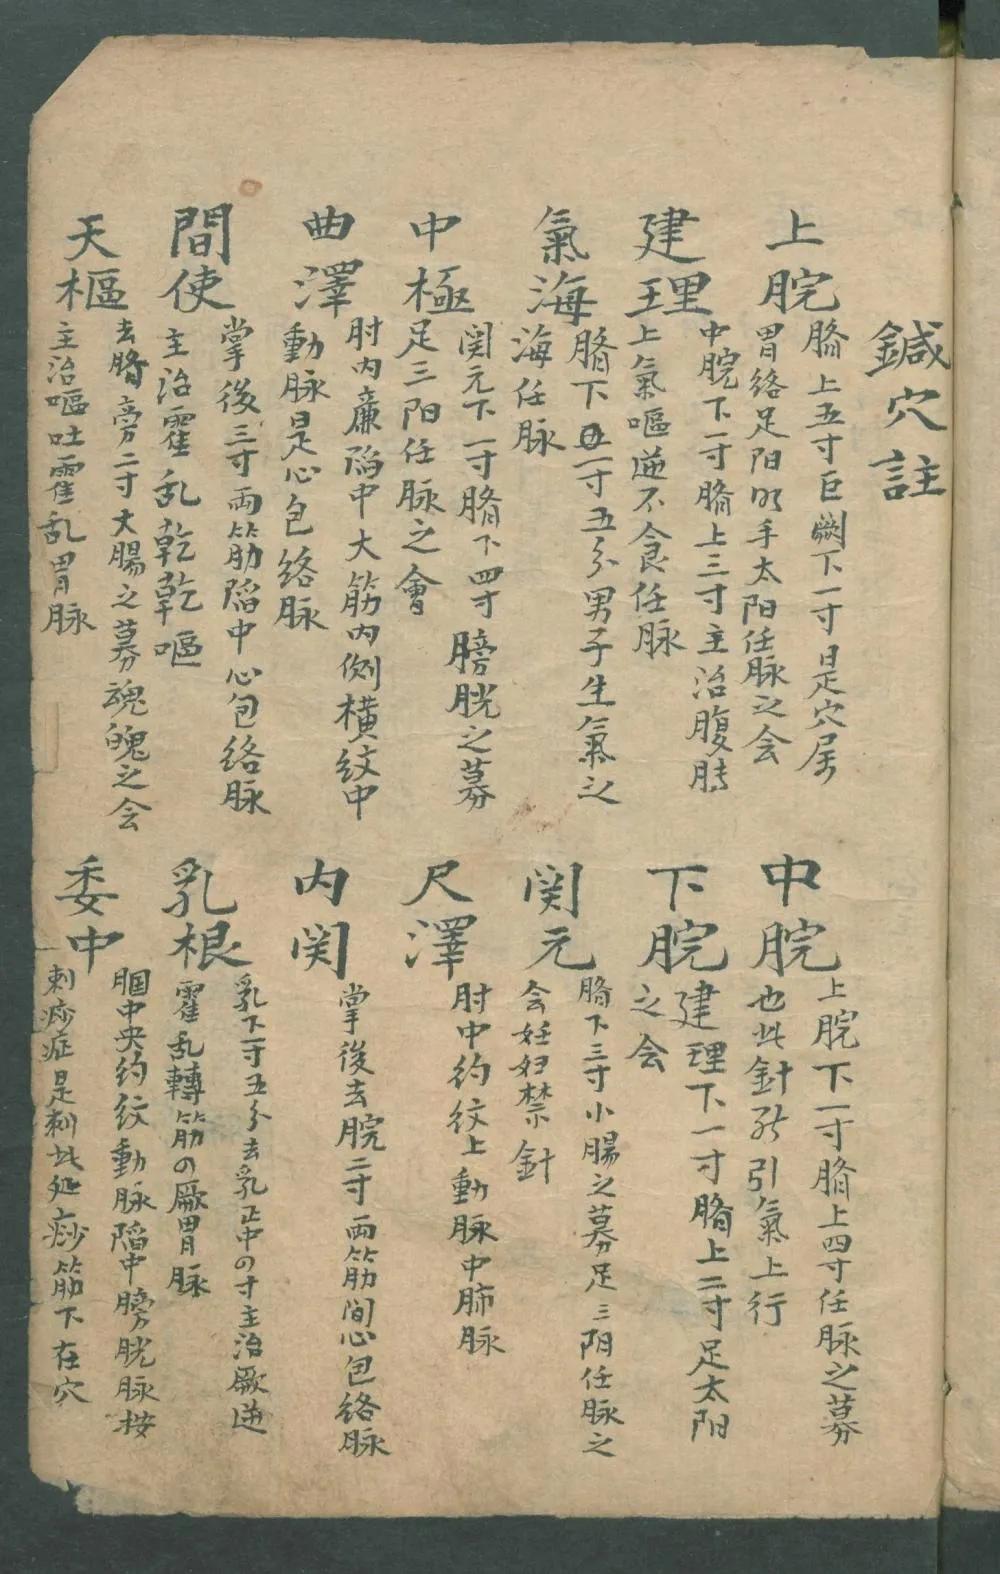 鍼穴註
上脘
臍上五寸巨闕下一寸是穴屬
胃絡足阳明手太阳任脉之会
中脘
上脘下一寸臍上四寸任脉之募
也此針能引氣上行
建理
中脘下一寸臍上三寸主治腹脹
上氣嘔逆不食任脉
下脘
建理下一寸臍上二寸足太阳
之会
氣海
臍下一寸五分男子生氣之
海任脉
関元
臍下三寸小腸之募足三阴任脉之
会妊妇禁針
中極
関元下一寸臍下四寸膀胱之募
足三阳任脉之會
尺澤
肘中約紋上動脉中肺脉
曲澤
肘内廉陷中大筋内側横紋中
動脉是心包絡脉
内関
掌後去脘二寸両筋間心包絡脉
間使
掌後三寸両筋陷中心包絡脉
主治霍乱乾乾嘔
乳根
乳下一寸五分去乳正中の寸主治厥逆
霍乱轉筋の厥胃脉
天樞
去臍旁二寸大腸之募魂魄之会
主治嘔吐霍乱胃脉
委中
膕中央約紋動脉陷中膀胱脉按
刺痧症是刺此処痧筋下在穴